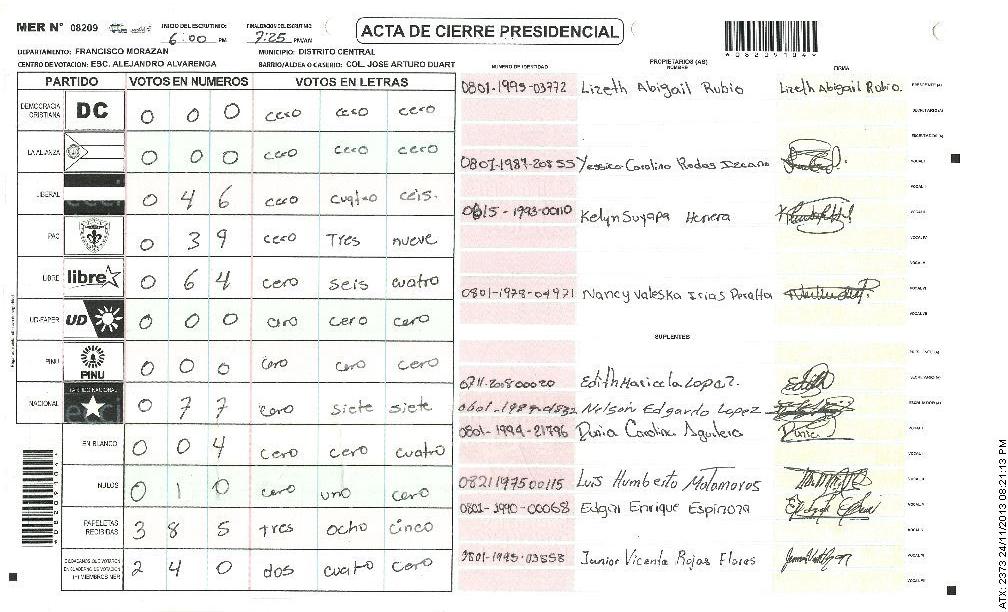 MER N° 08209 INICIO DEL ESCRUTINIO: 6:00 PM FINALIZACION DEL ESCRUTINIO: 7:25 PM/AM
ACTA DE CIERRE PRESIDENCIAL
DEPARTAMENTO: FRANCISCO MORAZAN MUNICIPIO: DISTRITO CENTRAL
CENTRO DE VOTACION: ESC. ALEJANDRO ALVARENGA BARRIO/ALDEA O CASERIO: COL. JOSE ARTURO DUART
PARTIDO VOTOS EN NUMEROS VOTOS EN LETRAS
DEMOCRACIA CRISTIANA DC 0 0 0 cero cero cero
LA ALIANZA 0 0 0 cero cero cero
LIBERAL 0 4 6 cero cuatro ceis.
PAC 0 3 9 cero Tres nueve
LIBRE libre 0 6 4 cero seis cuatro
UD-FAPER UD 0 0 0 cero cero cero
PINU PINU 0 0 0 cero cero cero
NACIONAL PARTIDO NACIONAL 0 7 7 cero siete siete
EN BLANCO 0 0 4 cero cero cuatro
NULOS 0 1 0 cero uno cero
PAPELETAS RECIBIDAS 3 8 5 tres ocho cinco
CIUDADANOS QUE VOTARON EN CUADERNO DE VOTACION (+) MIEMBROS MER 2 4 0 dos cuatro cero
NUMERO DE IDENTIDAD PROPIETARIOS (AS) NOMBRE FIRMA
0801-1995-03772 Lizeth Abigail Rubio Lizeth Abigail Rubio. PRESIDENTE (A)
SECRETARIO (A)
ESCRUTADOR (A)
0801-1987-20855 Yessica Carolina Rodas Izcano VOCAL I
VOCAL II
0615-1993-00110 Kelyn Suyapa Herrera VOCAL III
VOCAL IV
VOCAL V
0801-1978-04971 Nancy Valeska Irias Peralta VOCAL VI
VOCAL VII
SUPLENTES
PRESIDENTE (A)
0711-200800020 Edith Maricela Lopez. Edith SECRETARIO (A)
0601-1989-0 Nelson Edgardo Lopez ESCRUTADOR (A)
0801-1994-21796 Dunia Carolina Aguilera Dunia VOCAL I
VOCAL II
0821197500115 Luis Humberto Matamoros VOCAL III
0801-1990-00068 Edgin Enrique Espinoza VOCAL IV
VOCAL V
0801-1995-03558 Junior Vicente Rojas Flores VOCAL VI
VOCAL VII
ATX: 2373 24/11/2013 08:21:13 PM